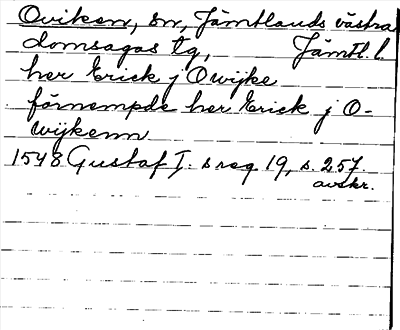 Oviken, sn, Jämtlands västra
domsagas tg, Jämtl. l.
her Erick j Owijke
förnempde her Erick j O-
wijkenn
1548 Gustaf I. s reg 19, s. 257.
avskr.